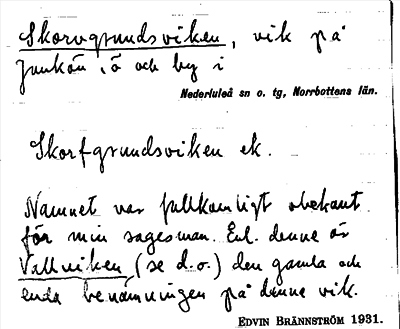 Skorvgrundsviken, vik på
Junkön, ö och by i
Nederluleå sn o. tg, Norrbottens län.
Skorfgrundsviken ek.
Namnet var fullkomligt obekant
för min sagesman. Enl. denne är
Vallviken, (se d.o.) den gamla och
enda benämningen på denne vik.
EDVIN BRÄNNSTRÖM 1931.